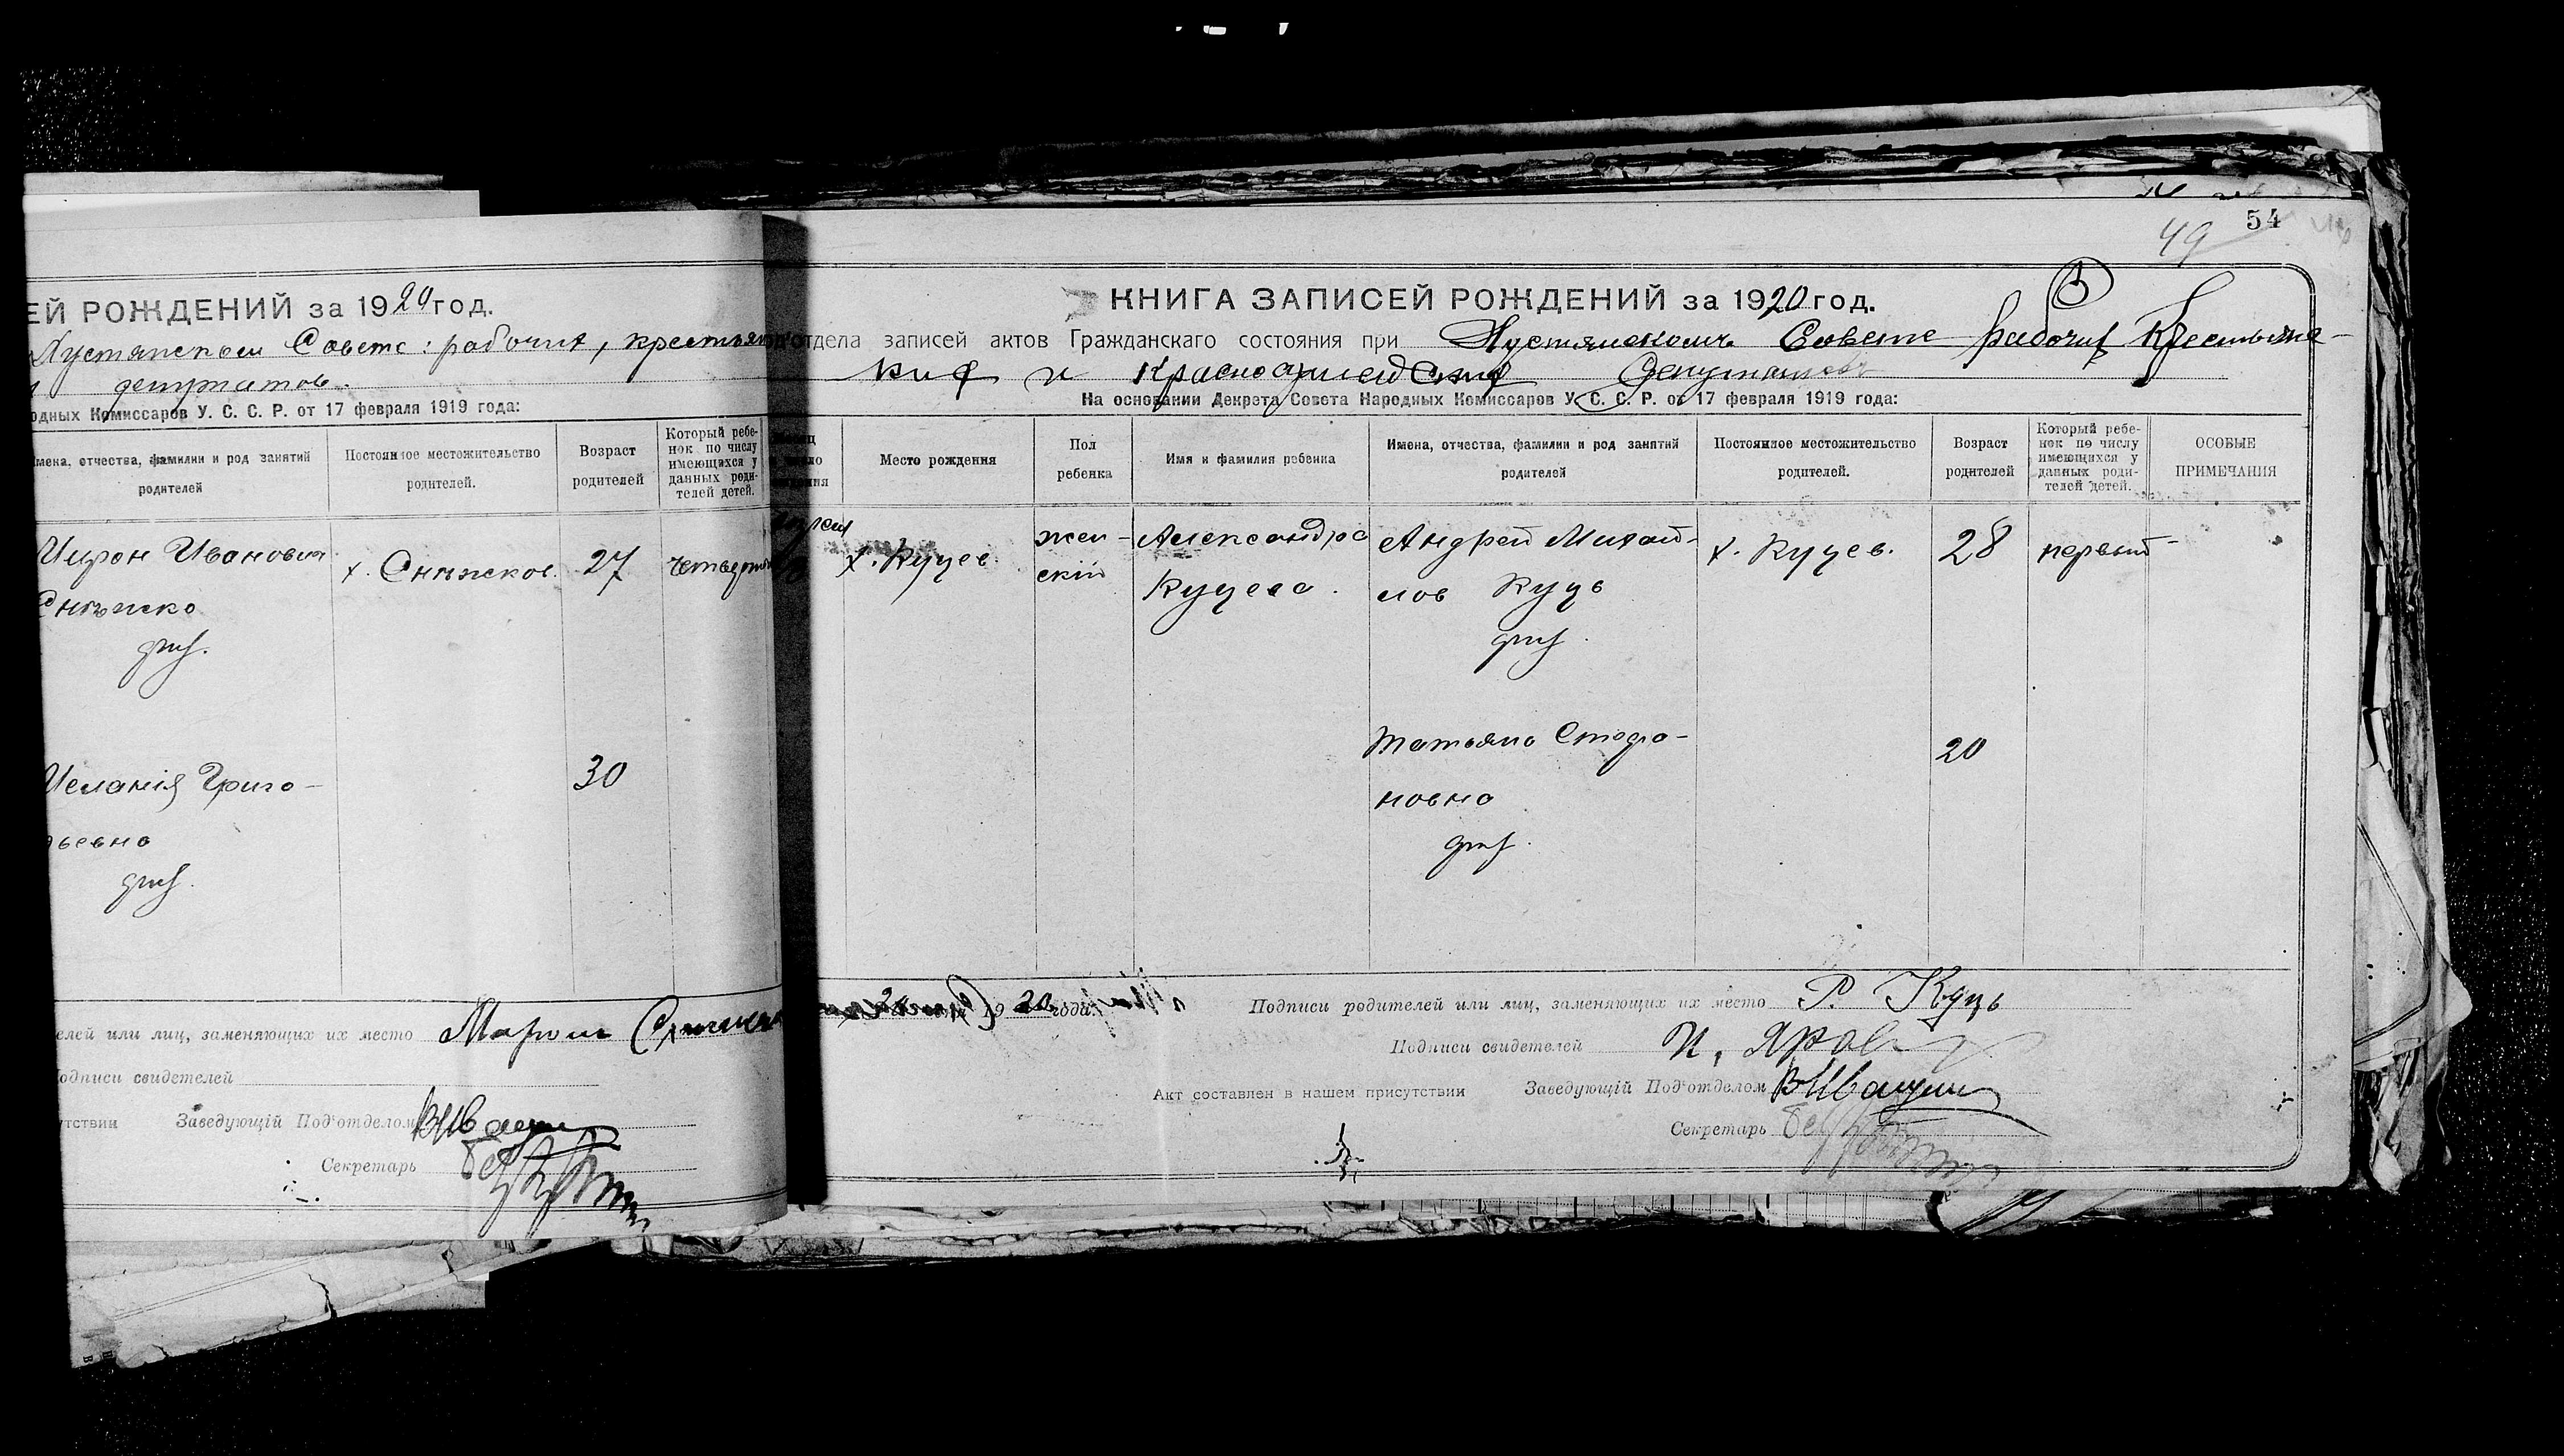 ЕЙ РОЖДЕНИЙ за 1920 год.
Хустянском Совете: рабочих, крестьян
депутатов.
одных Комиссаров У. С. С. Р. от 17 февраля 1919 года:
мена, отчества, фамилии и род занятий родителей
Постоянное местожительство родителей.
Возраст родителей
Который ребе-
нок по числу
имеющихся у
данных роди-
телей детей.
Иванович
х. Снѣжков.
27
30
Григо-
рьевна
елей или лиц, заменяющих их место
Подписи свидетелей
утствии Заведующій Под'отделом
Секретарь
49
54
КНИГА ЗАПИСЕЙ РОЖДЕНИЙ за 1920 год.
отдела записей актов Гражданскаго состояния при Хустянском Совете рабочих Крестьянс-
ких и Красноармейских Депутатов
На основании Декрета Совета Народных Комиссаров У. С. С. Р. от 17 февраля 1919 года:
Место рождения
Пол
ребенка
Имя и фамилия ребенка
Имена, отчества, фамилии и род занятий
родителей
Постоянное местожительство
родителей.
Возраст
родителей
Который ребе-
нок по числу
имеющихся у
данных роди-
телей детей.
ОСОБЫЕ
ПРИМЕЧАНИЯ
х. Куцев.
жен-
скій
Александра
Куцева.
Андрей Михай-
лов Куць
х. Куцев.
28
первый
Татьяна Стефа-
новна
20
1920 года
Подписи родителей или лиц, заменяющих их место Р. Куць
Подписи свидетелей
Акт составлен в нашем присутствии Заведующій Под'отделом
Секретарь